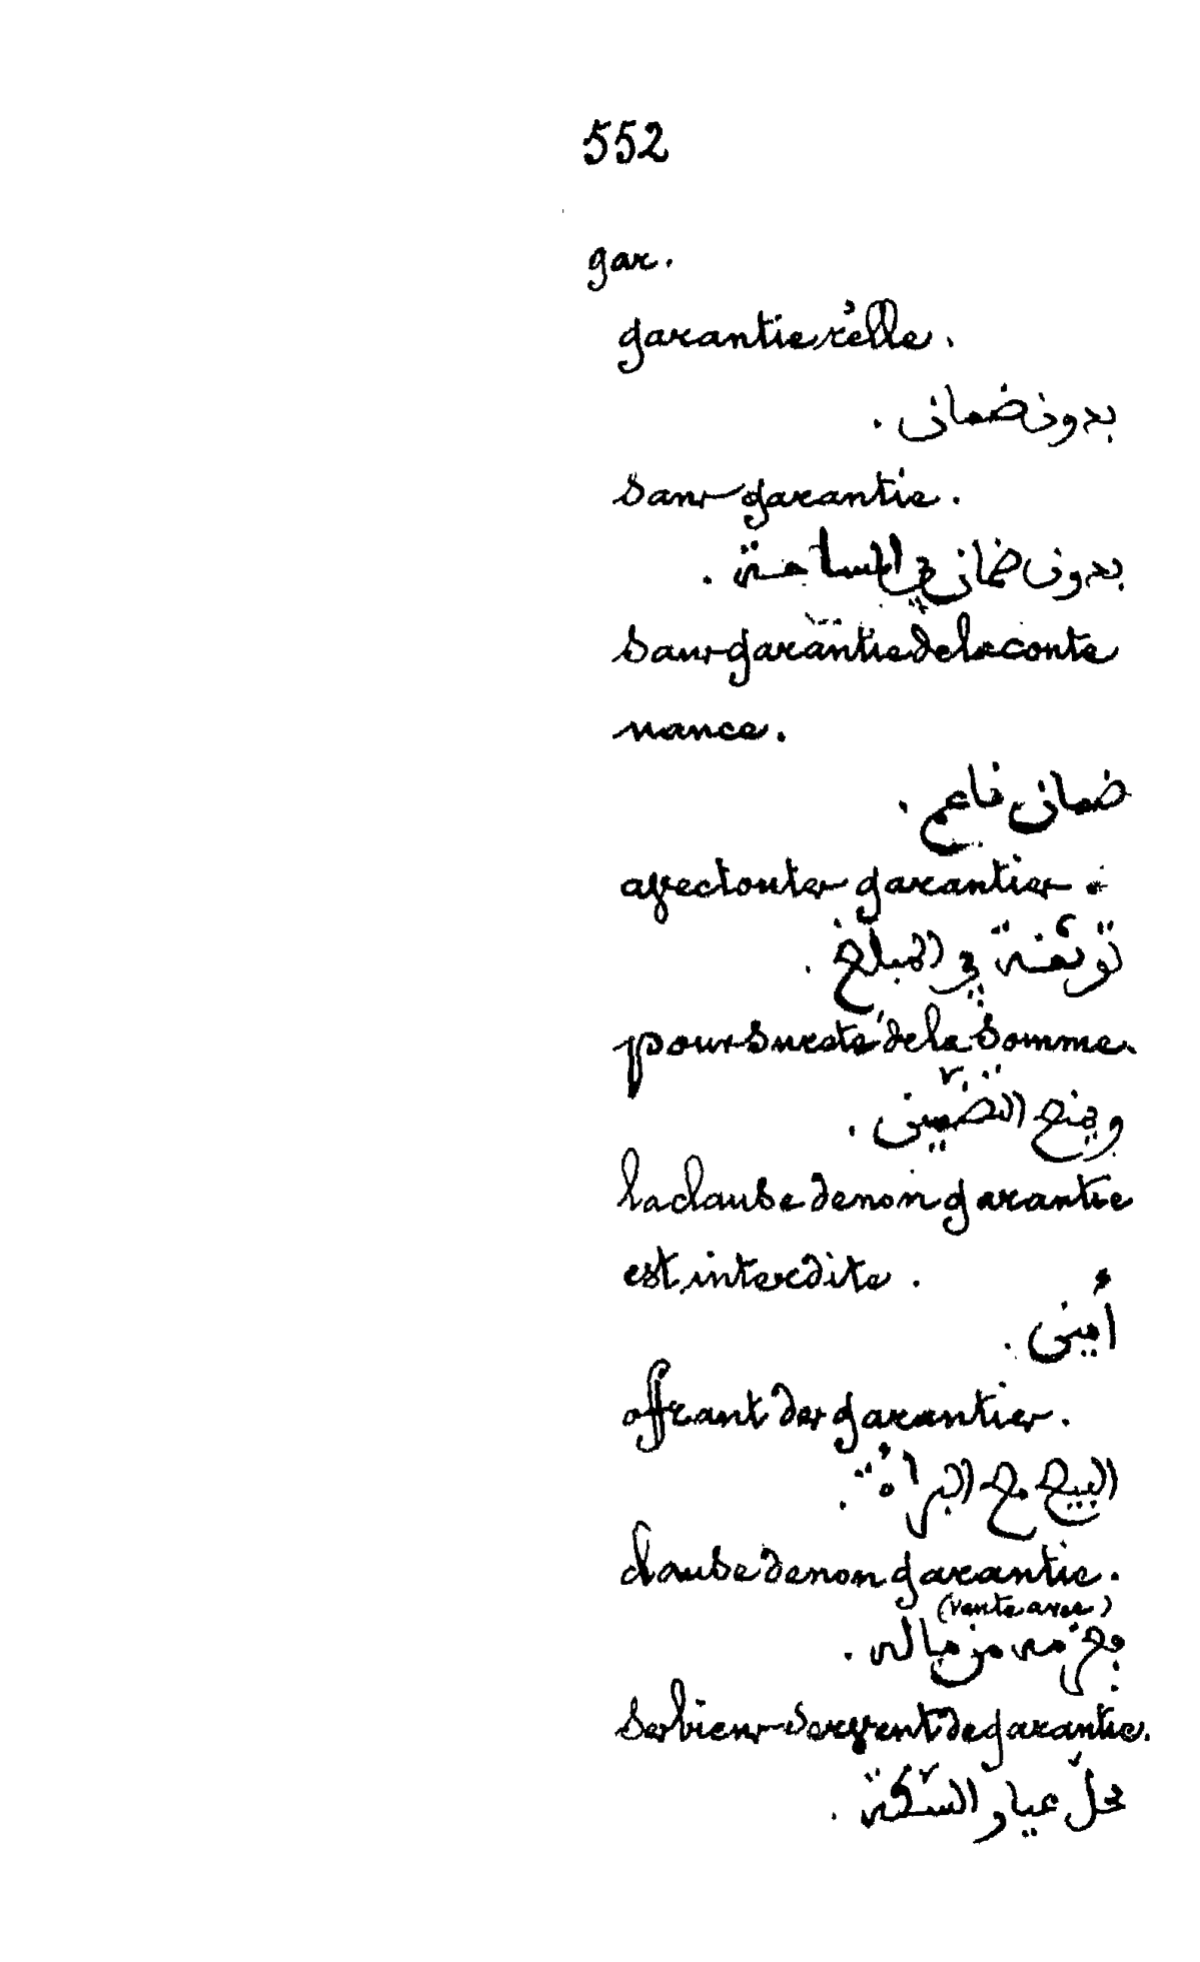 552
gar.
garantie réelle.
بدون ضمان.
sans garantie.
بدون ضمان في المساحة.
sans garantie de la conte
nance.
ضمان
avec toutes garanties.
توثقة في المبلغ.
pour sureté de la somme.
ويمنع التضمين.
la clause de non garantie
est interdite.
أمين.
offrant des garanties.
البيع مع البراءة.
clause de non garantie.
(vente avec)
من ماله.
ses biens servent de garantie.
محلّ عيار السّكّة.